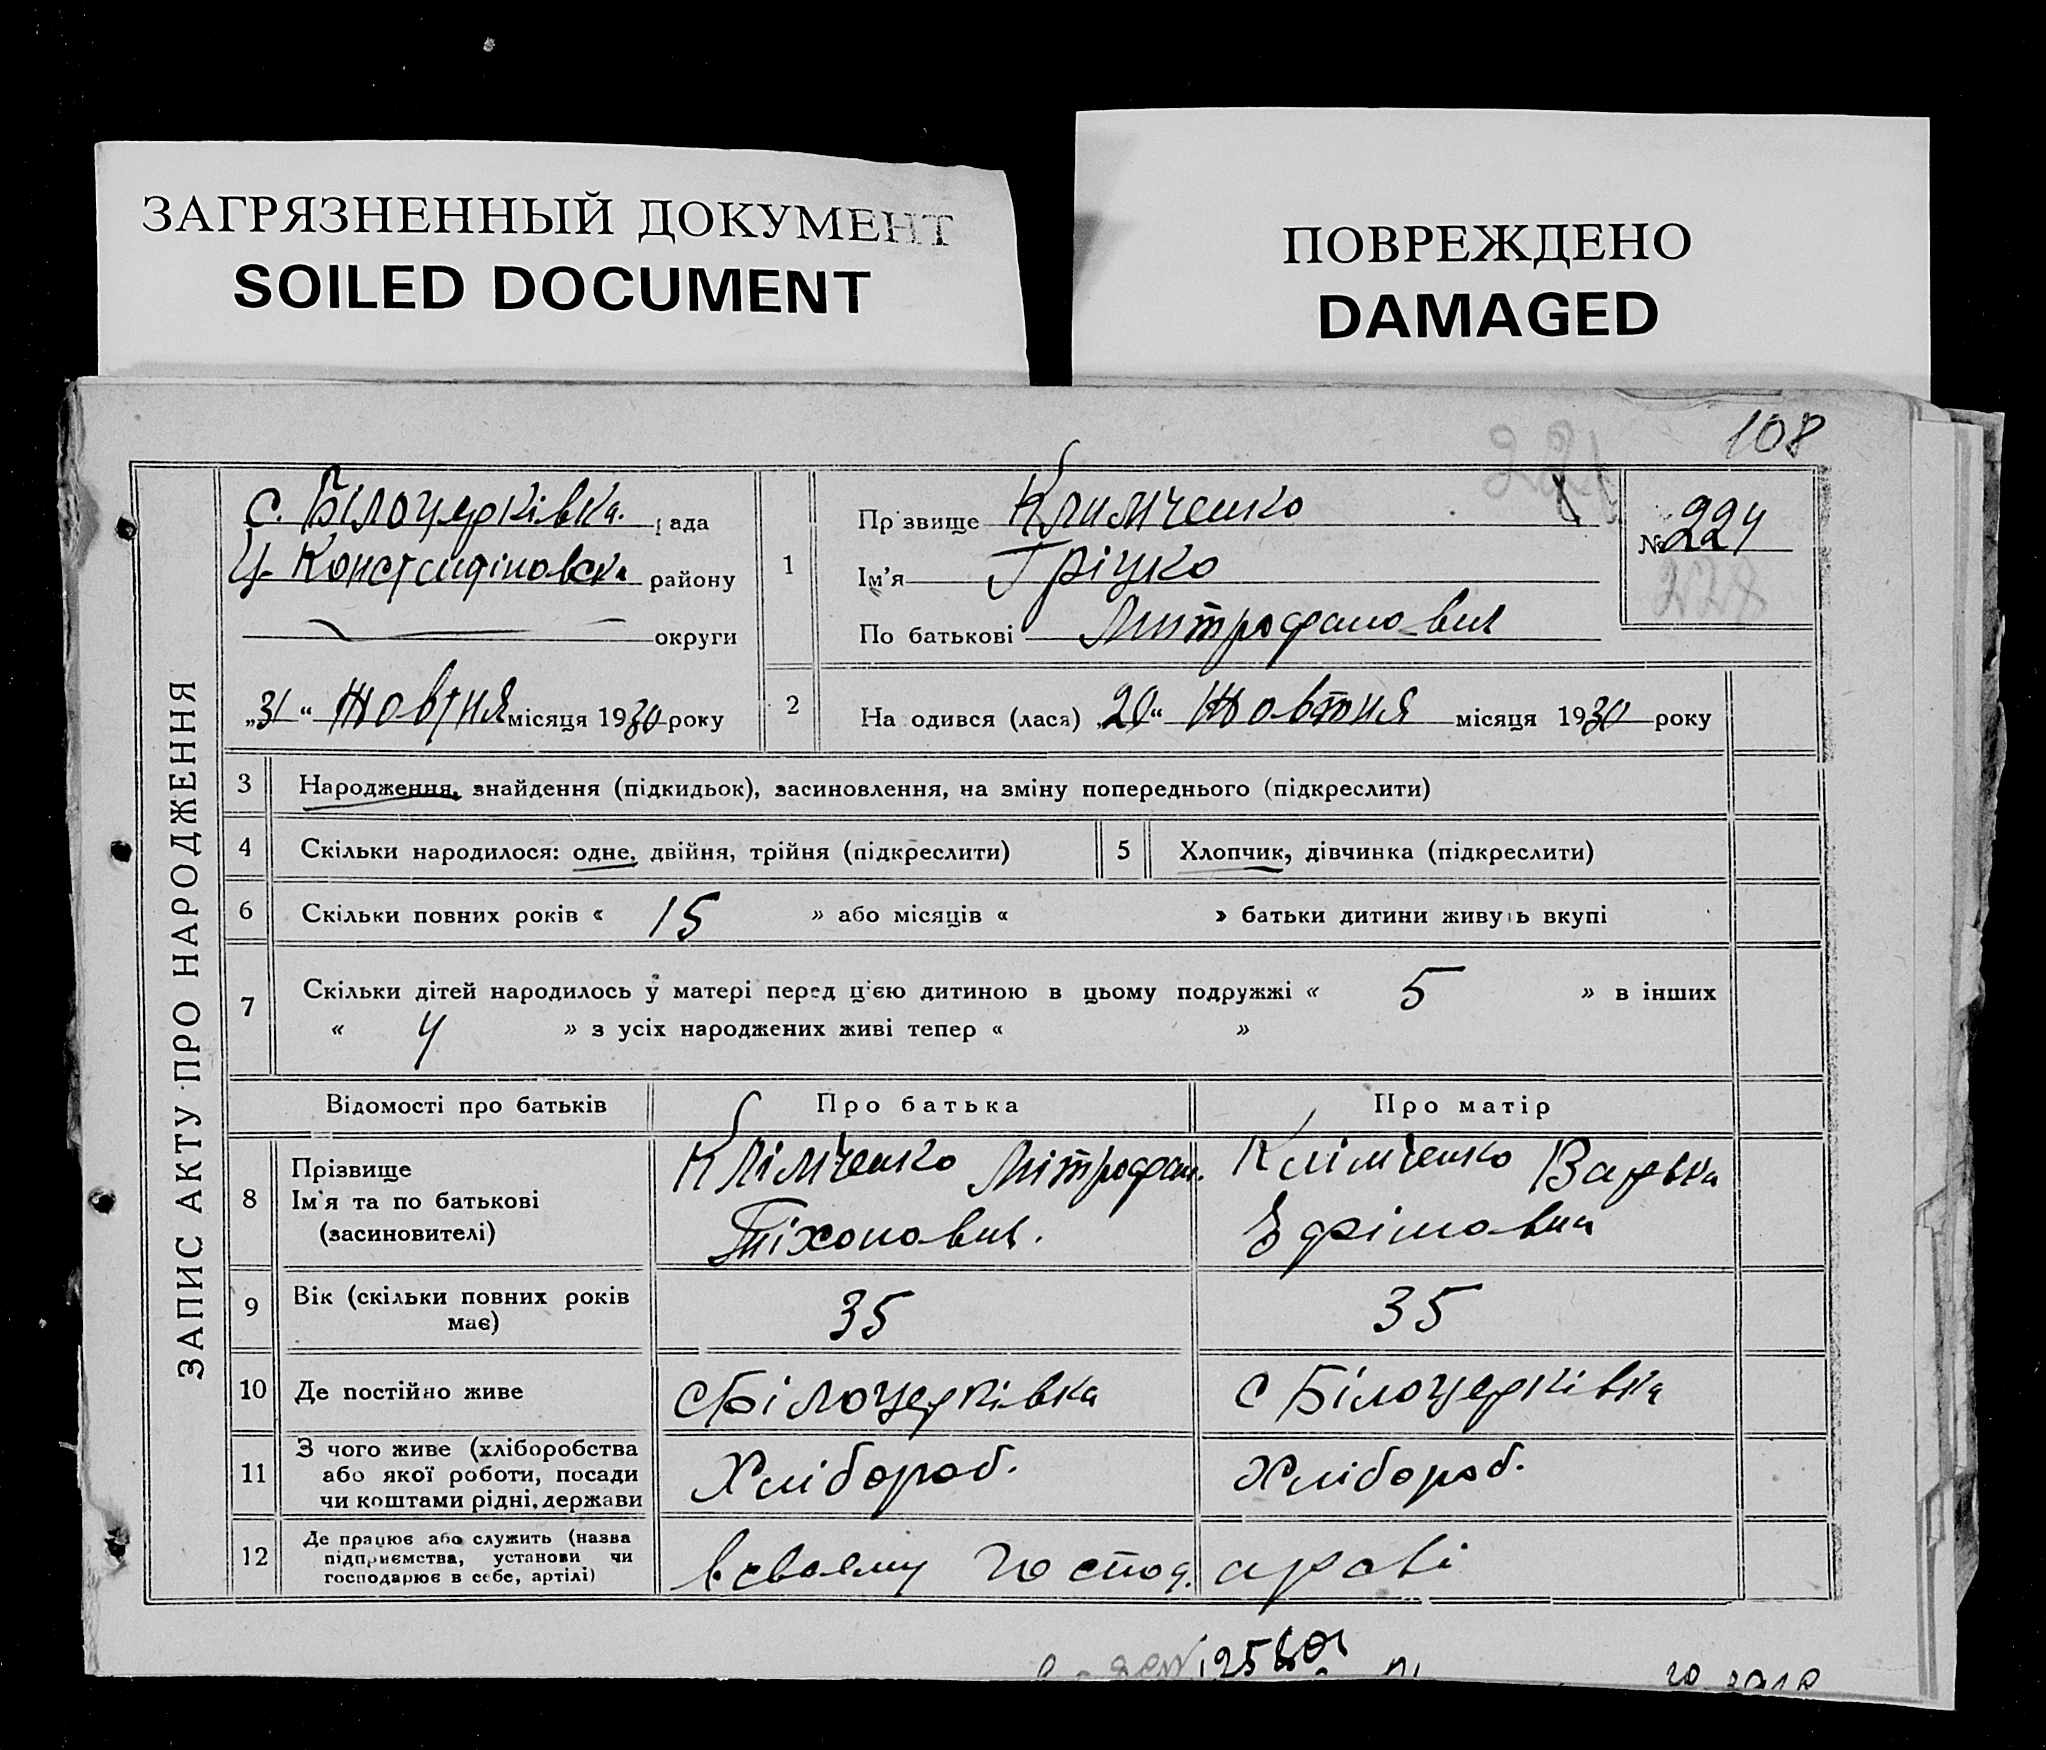 ЗАГРЯЗНЕННЫЙ ДОКУМЕНТ
SOILED DOCUMENT
ПОВРЕЖДЕНО
DAMAGED
108
ЗАПИС АКТУ ПРО НАРОДЖЕННЯ
с. Білоцерківка. рада
Ц. Констентіновска району
округи
„31“ Жовтня місяця 1930 року
1
Прізвище Климченко
Ім’я Гріцко
По батькові Митрофанович
№ 224
228
2
На одився (лася) „20“ Жовтня місяця 1930 року
3 Народження, знайдення (підкидьок), засиновлення, на зміну попереднього (підкреслити)
4 Скільки народилося: одне, двійня, трійня (підкреслити)
5 Хлопчик, дівчинка (підкреслити)
6 Скільки повних років « 15 » або місяців « » батьки дитини живуть вкупі
7 Скільки дітей народилось у матері перед ц'єю дитиною в цьому подружжі « 5 » в інших
« 4 » з усіх народжених живі тепер « »
Відомості про батьків Про батька Про матір
8 Прізвище
Ім'я та по батькові
(засновителі)
Клімченко Мітрофан.
Тіхонович.
Клімченко Варька
Ефімовна
9 Вік (скільки повних років
має)
35 35
10 Де постійно живе с Білоцерківка с Білоцерківка
11 З чого живе (хліборобства
або якої роботи, посади
чи коштами рідні, держави
Хлібороб. Хлібороб.
12 Де працює або служить (назва
підприємства, установи чи
господарює в себе, артілі)
в своему господ. араві